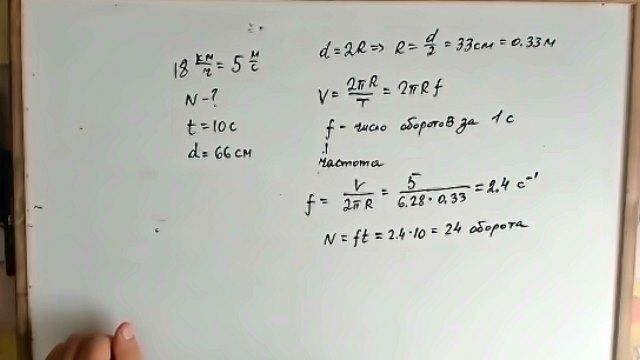 18 км/ч = 5 м/с
N - ?
t = 10 с
d = 66 см
d = 2R => R = d/2 = 33 см = 0.33 м
V = 2πR/T = 2πRf
f - число оборотов за 1 с
частота
f = V/2πR = 5/6.28·0,33 = 2.4 с⁻¹
N = ft = 2.4·10 = 24 оборота